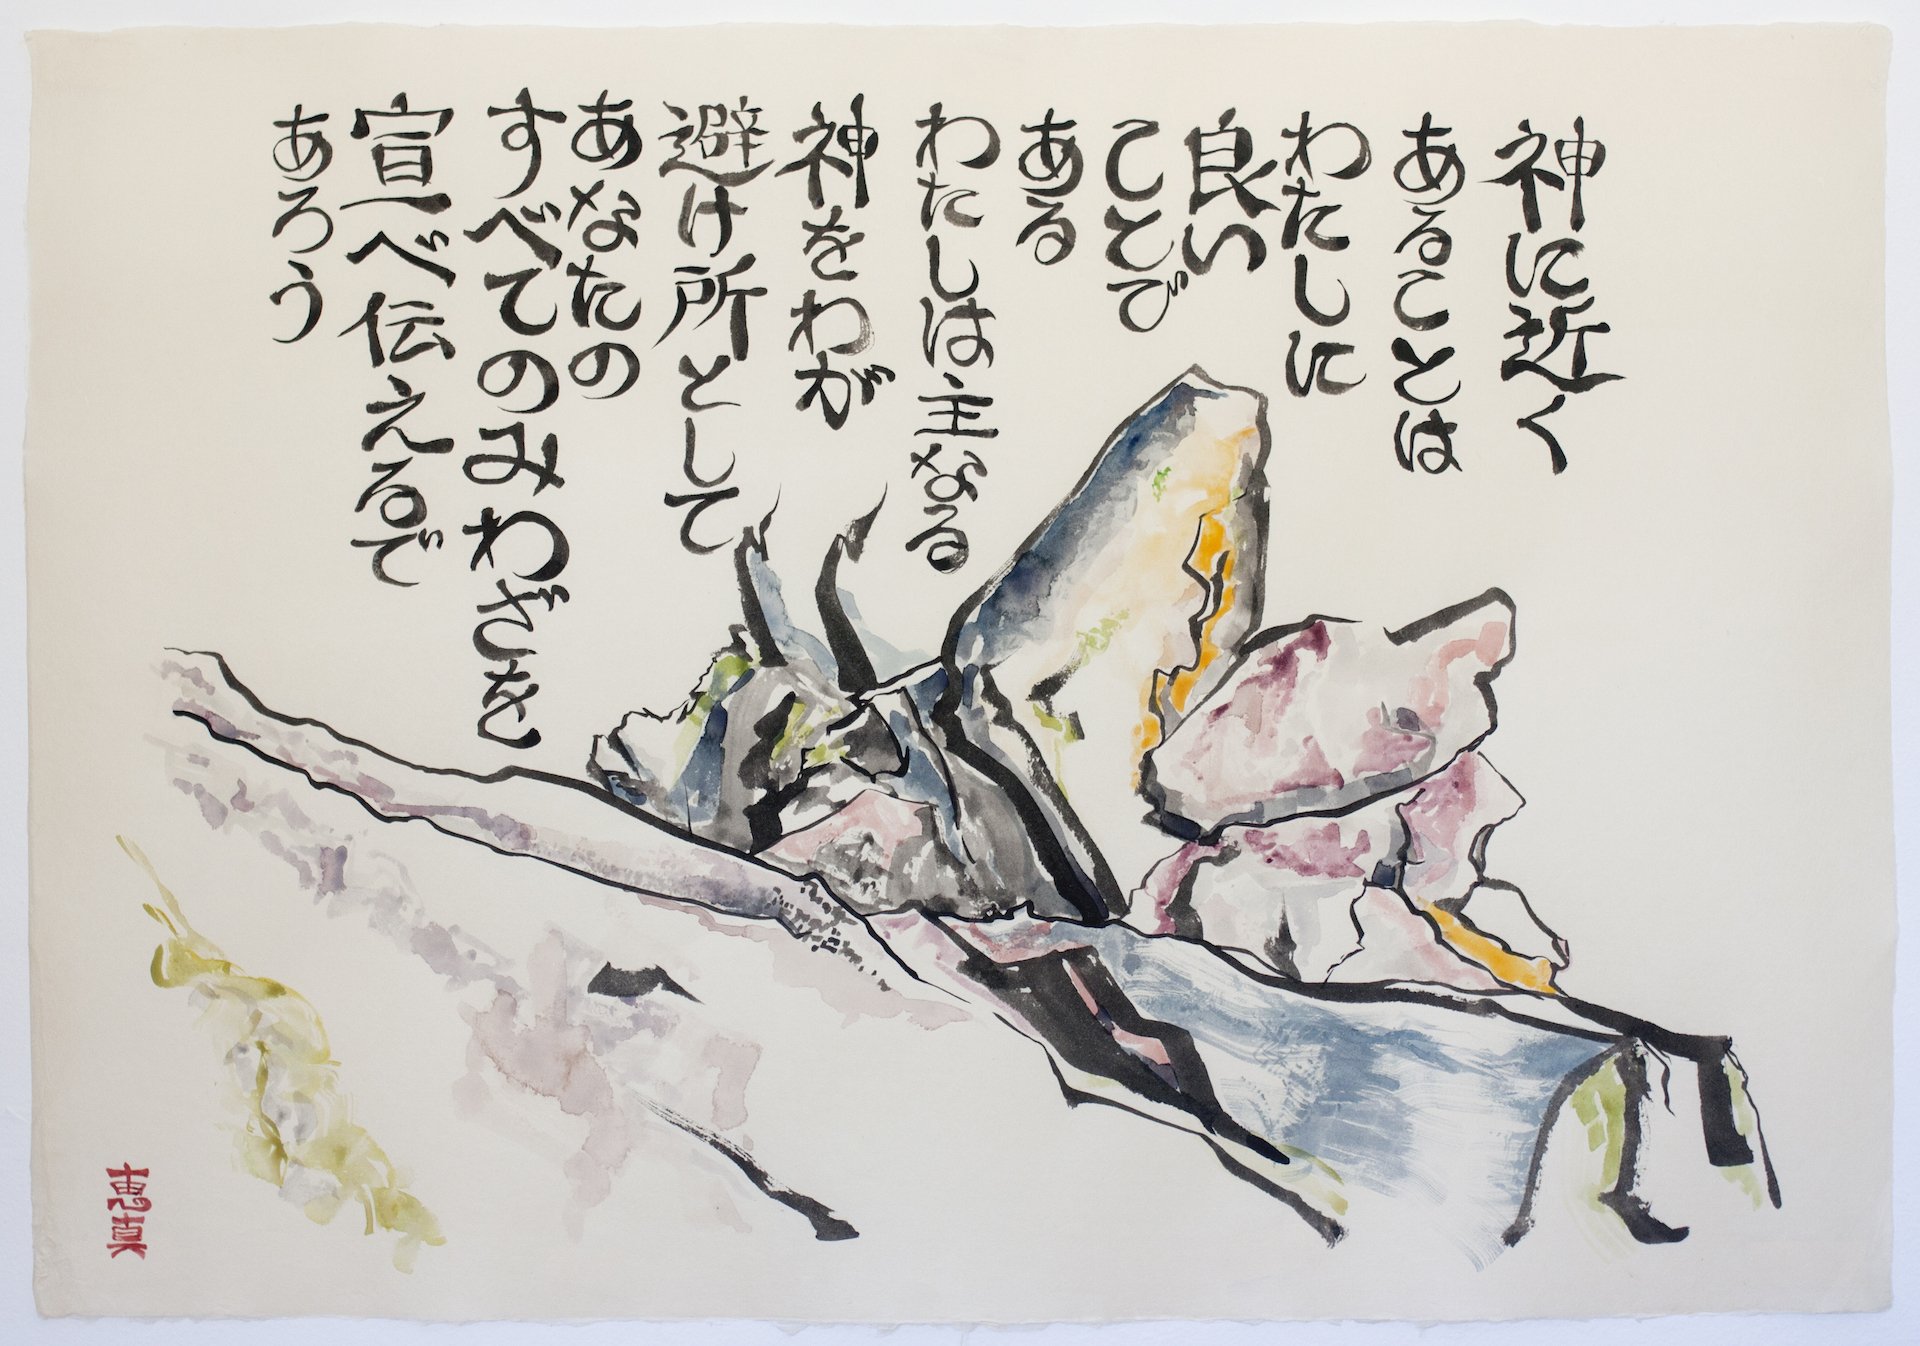 神に近く
あることは
わたしに
良い
ことで
ある
わたしは主なる
神をわが
避け所として
あなたの
すべてのみわざを
宣べ伝えるで
あろう
恵真